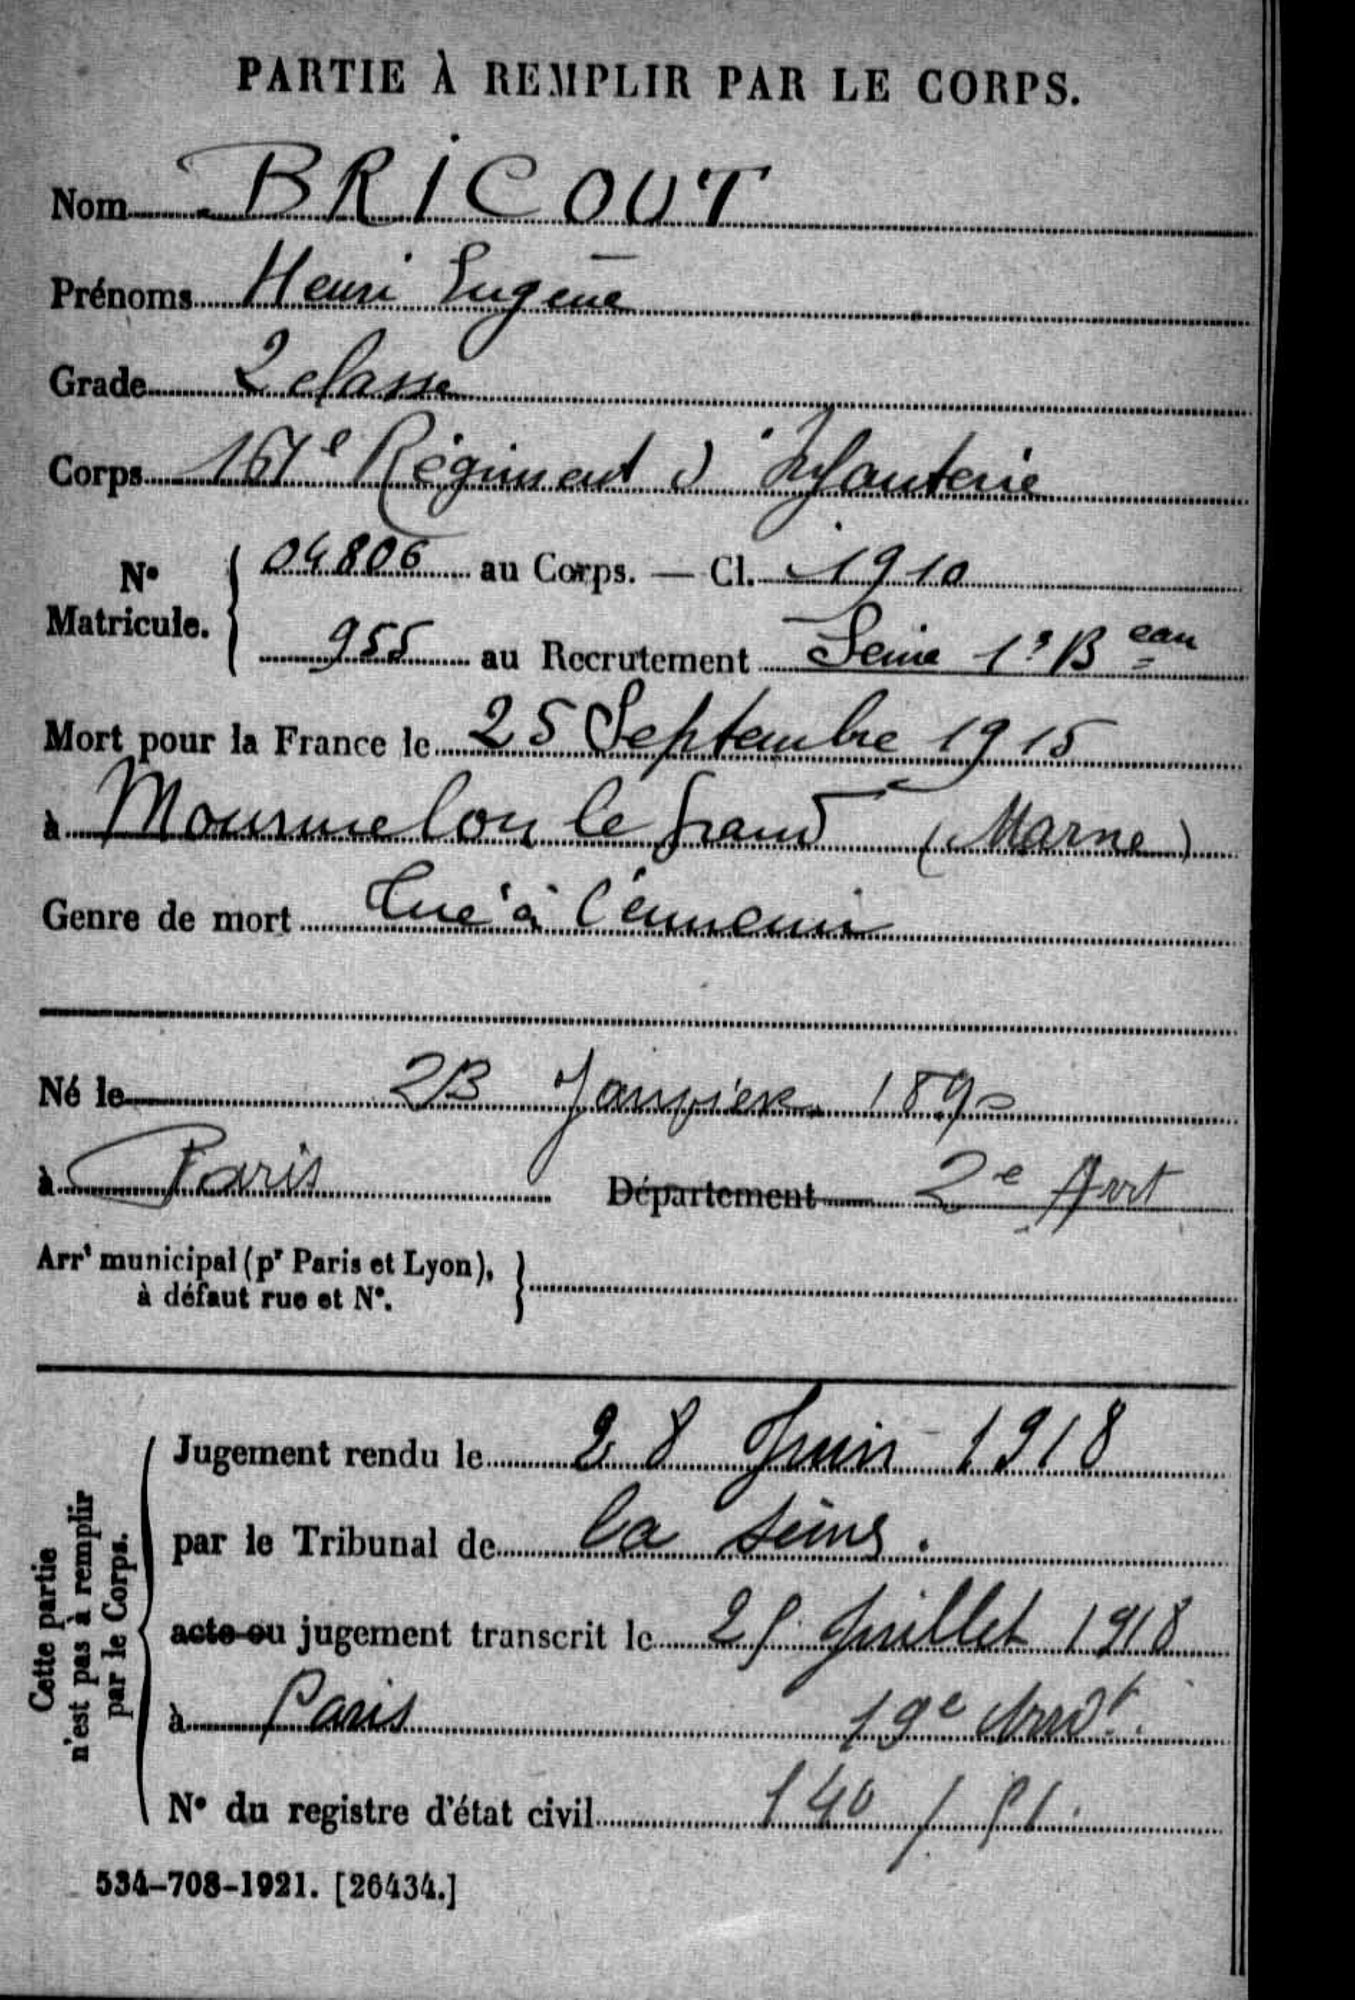 PARTIE À REMPLIR PAR LE CORPS.
Nom BRICOUT
Prénoms Henri Eugène
Grade 2 classe
Corps 161e Régiment d'Infanterie
No Matricule. { 04806 au Corps. — Cl. 1910
955 au Recrutement Seine 1er Beau
Mort pour la France le 25 Septembre 1915
à Mourmelon le Grand (Marne)
Genre de mort Tué à l'ennemi
Né le 23 Janvier 1890
à Paris Département 2e Arrt
Arrt municipal (pr Paris et Lyon), }
à défaut rue et No.
Cette partie
n'est pas à remplir
par le Corps.
Jugement rendu le 28 Juin 1918
par le Tribunal de la Seine.
acte ou jugement transcrit le Juillet 1918
à Paris 19e Arrdt.
No du registre d'état civil 140 /
534-708-1921. [26434.]